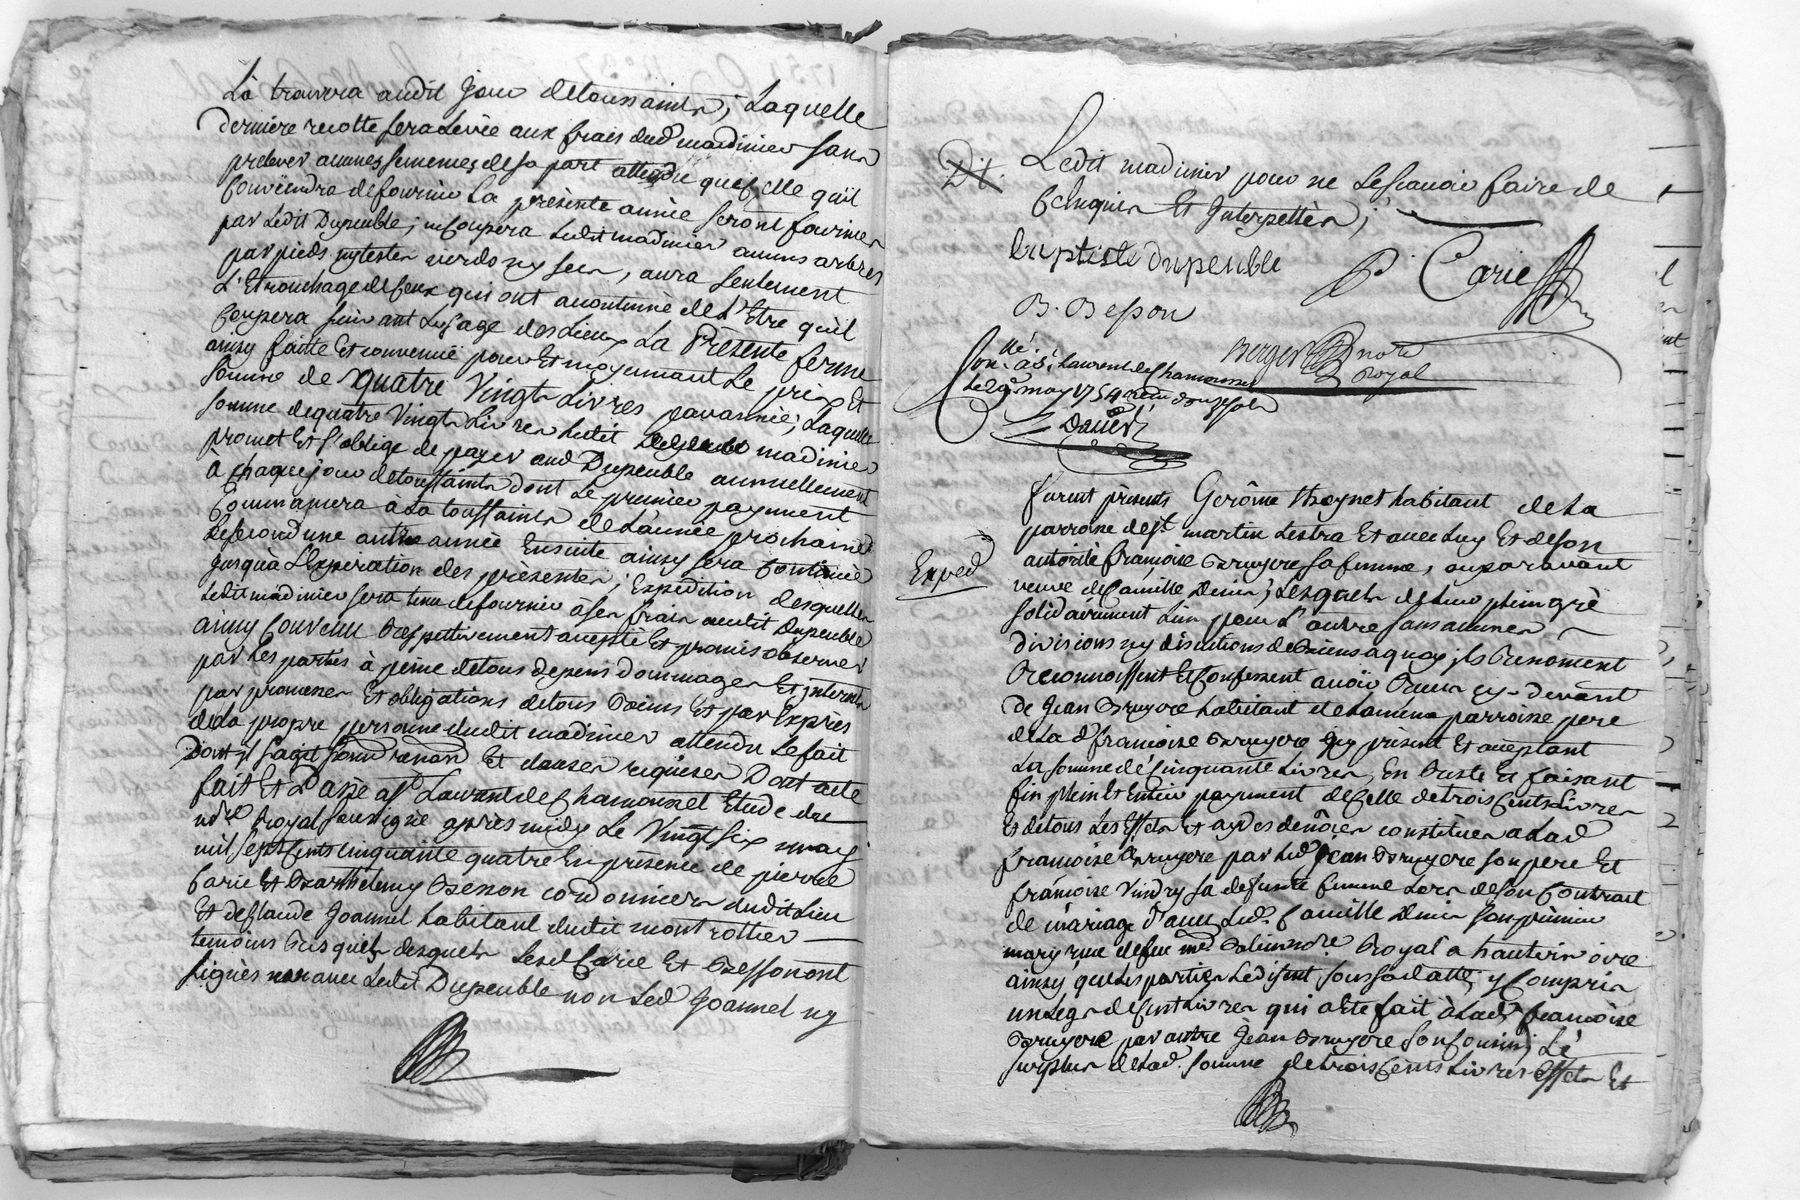 La trouvera audit jour detoussaints ; Laquelle
derniere recolte sera Levée aux frais dud madinier sans
prelever aucunes semences de sa part attendu que celle quil
conviendra de fournir La presente année seront fournies
par Ledit Dupeuble ; ne coupera Ledit madinier aucuns arbres
par pieds ny testes verds ny secs, aura seulement
L'Etronchage de ceux qui ont acoutumé de L'Etre quil
coupera suivant Lusage des Lieux La Présente ferme
ainsy faitte Et convenüe pour Et moyennant Le prix Et
somme de quatre Vingts Livres par année ; Laquelle
somme de quatre Vingts Livres Ledit madinier
promet Et s'oblige de payer aud Dupeuble annuellement
à chaque jour detoussaints dont Le premier payment
Commancera à La toussaints de L'année prochaine
Le second une autre année Ensuite ainsy sera continué
jusquà L'Expiration des présentes ; Expedition desquelles
Ledit madinier sera tenu de fournir à ses frais audit Dupeuble
ainsy convenu respectivement accepté Et promis observer
par Les parties à peine detous depens dommages Et interets
par promesses Et obligations detous biens Et par Exprès
de La propre personne dudit madinier attendu Le fait
Dont il sagit renon Et clauses requises Dont acte
fait Et Passé a St Laurent de Chamousset Etude du
nore Royal soussigné après midy Le Vingt six may
mil sept cents cinquante quatre En présence de pierre
Carie Et Barthelemy Besson cordonniers dudit Lieu
Et de Claude Joannel habitant dudit montrottier
temoins requis desquels Lesd Carie Et Besson ont
signés avec Ledit Dupeuble non Led Joannel ny
Dt.
Ledit madinier pour ne Le scavoir faire de
ce Enquis Et Interpellés ;
baptiste dupeuble
P Carie
B. Besson
Berger nore
Royal
Conllé. à St Laurent de Chamousset
Le 29 may 1754 reçu douze sols
Exped
furent présents Gerôme Thoynet habitant de La
parroise de St martin Lestra Et avec Luy Et de son
autorité francoise Bruyere sa femme, auparavant
veuve de Camille Denis ; Lesquels de Leur plein gré
solidairement L'un pour L'autre sans aucunes
divisions ny discutions de biens aquoy ils renoncent
Reconnoissent Et Confessent avoir Receu cy-devant
de Jean Bruyere habitant de La meme parroise pere
de La d. francoise Bruyere icy présent Et acceptant
La somme de Cinquante Livres, En reste Et faisant
fin plein Et Entier payment de Celle detrois Cents Livres
Et detous Les Effets Et aydes de nôces constitués a Lad
francoise Bruyere par Led Jean Bruyere son pere Et
francoise Vindry sa defunte femme Lors de son Contrat
de mariage d'avec Led. Camille Denis son premier
mary reçu de feu me. nore. Royal a hauterivoire
ainsy que Les parties Le disent sous sa datte, y Compris
un Legs de Cent Livres qui a Eté fait à Lad francoise
Bruyere par autre Jean Bruyere son Cousin ; Le
surplus de Lad. somme detrois Cents Livres Effets Et